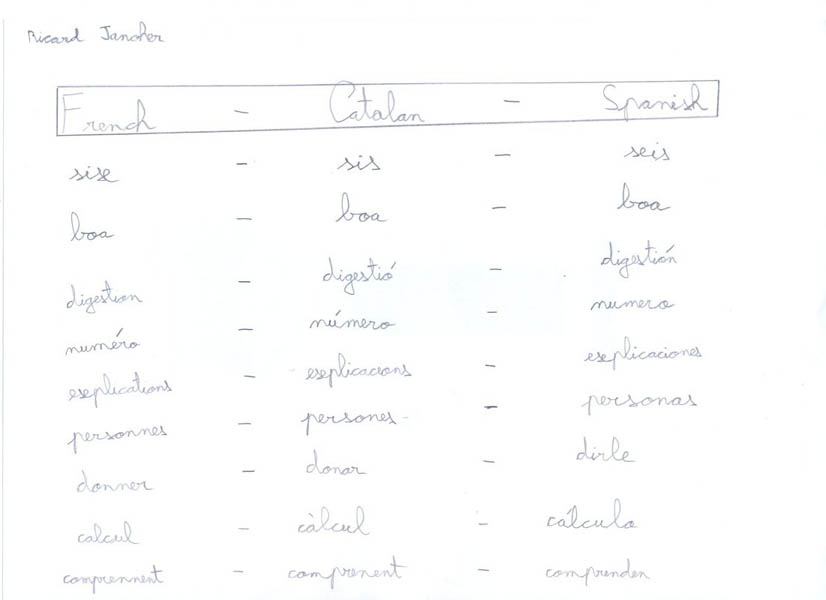 Ricard
French - Catalan - Spanish
six - sis - seis
boa - boa - boa
digestion - digestió - digestión
numéro - número - numero
explications - explicacions - explicaciones
personnes - persones - personas
donner - donar - dirle
calcul - càlcul - cálculo
comprennent - comprenent - comprenden